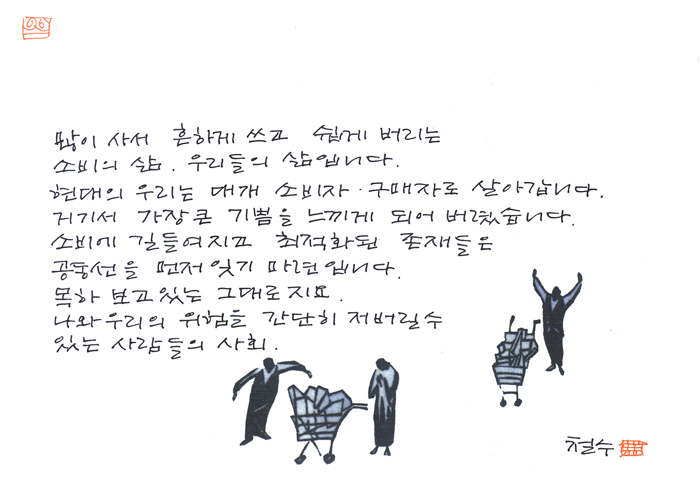 많이 사서 흔하게 쓰고 쉽게 버리는
소비의 삶. 우리들의 삶입니다.
현대의 우리는 대개 소비자·구매자로 살아갑니다.
거기서 가장 큰 기쁨을 느끼게 되어 버렸습니다.
소비에 길들여지고 최적화된 존재들은
공동선을 먼저 잊기 마련입니다.
목하 보고 있는 그대로지요.
나와 우리의 위험을 간단히 저버릴 수
있는 사람들의 사회.
철수